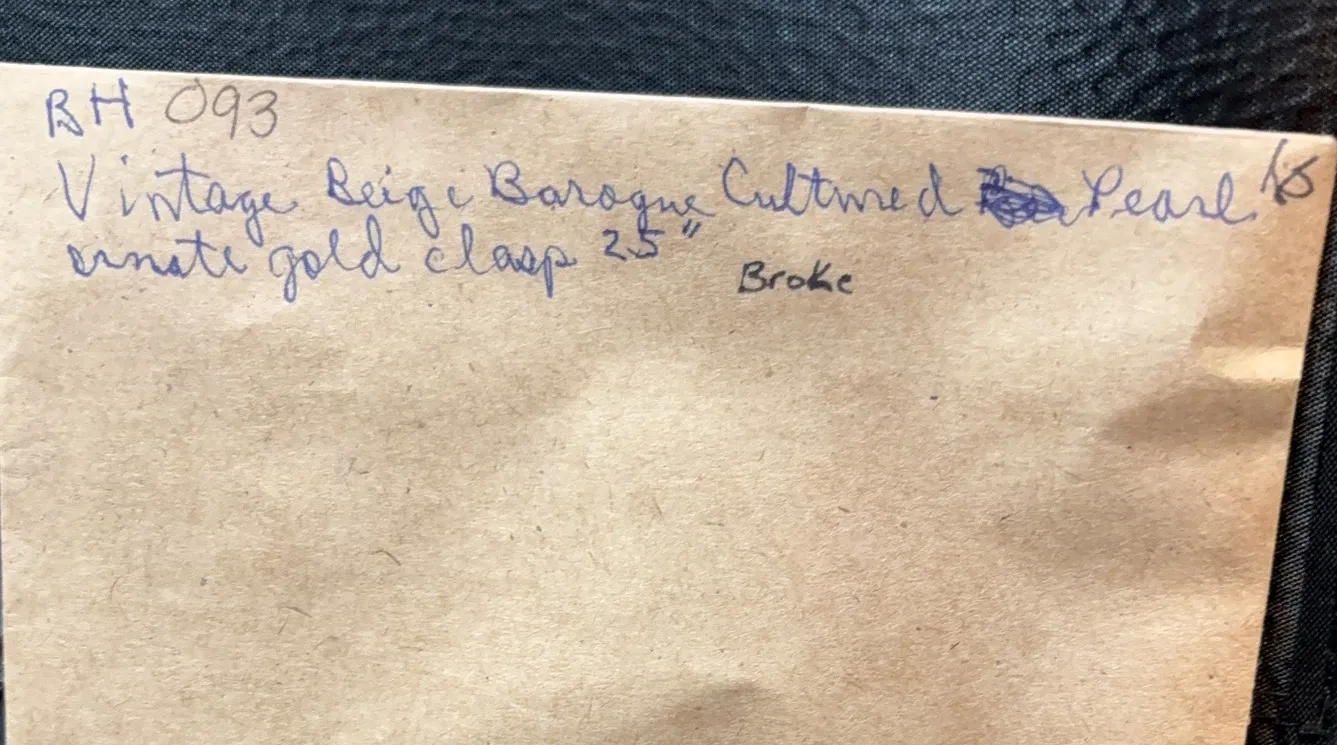 BH 093
Vintage Beige Baroque Cultured Pearl
ornate gold clasp 25" Broke